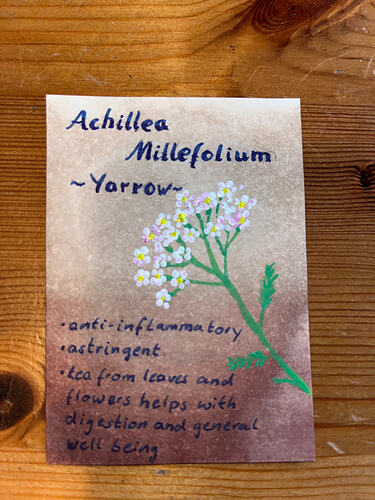 Achillea
Millefolium
~Yarrow~
•anti-inflammatory
•astringent
•tea from leaves and
flowers helps with
digestion and general
well being